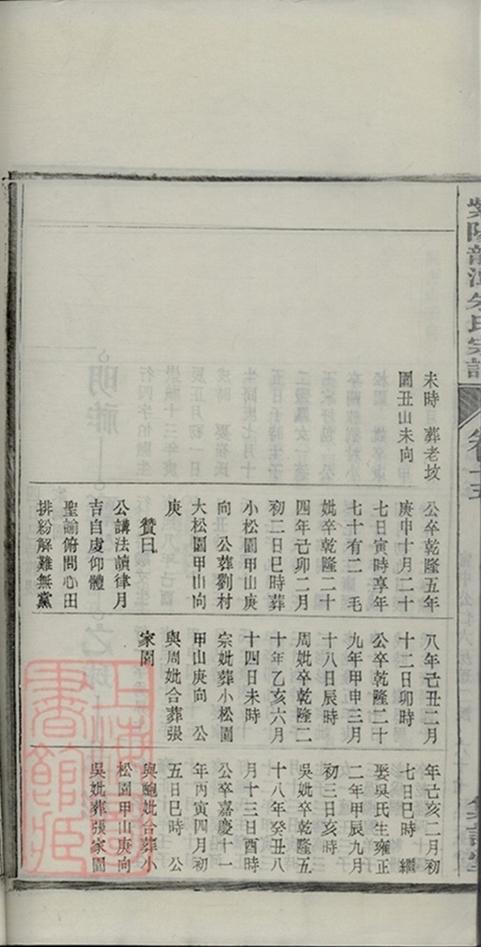 紫陽龍潭朱氏宗譜
卷十五
未時 葬老坟
園丑山未向
公卒乾隆五年
庚申十月二十
七日寅時享年
七十有二 毛
妣卒乾隆二十
四年己卯二月
初二日巳時葬
小松園甲山庚
向 公葬劉村
大松園甲山向
庚
贊曰
公講法讀律月
吉自虔仰體
聖諭俯問心田
排紛解難無黨
八年己丑二月
十二日卯時
公卒乾隆二十
九年甲申三月
十八日辰時
周妣卒乾隆二
十年乙亥六月
十四日未時
宗妣葬小松園
甲山庚向 公
與周妣合葬張
家園
年己亥二月初
七日巳時 繼
娶吳氏生雍正
二年甲辰九月
初三日亥時
吳妣卒乾隆五
十八年癸丑八
月十三日酉時
公卒嘉慶十一
年丙寅四月初
五日巳時 公
與鮑妣合葬小
松園甲山庚向
吳妣葬張家園